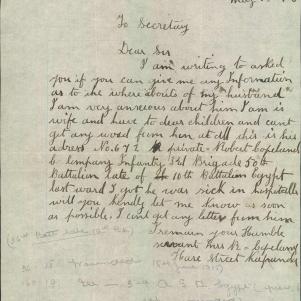 To Secretary
Dear Sir
I am writing to asked
you if you can give me any Information
as to the where abouts of my "husband"
I am very anxeous about him I am is
wife and have to dear children and cant
get any word from him at all this is his
adress No. 672 private Robert Copeland
C Company Infantry 3rd Brigade 50th
Battalion late of 10th Battalion Egypt
last word I got he was sick in hospitells
will you kindly let me know as soon
as possible. I cant get any letter from him
I remain your Humble
servant Mrs R Copeland
Hare Street Kapunda